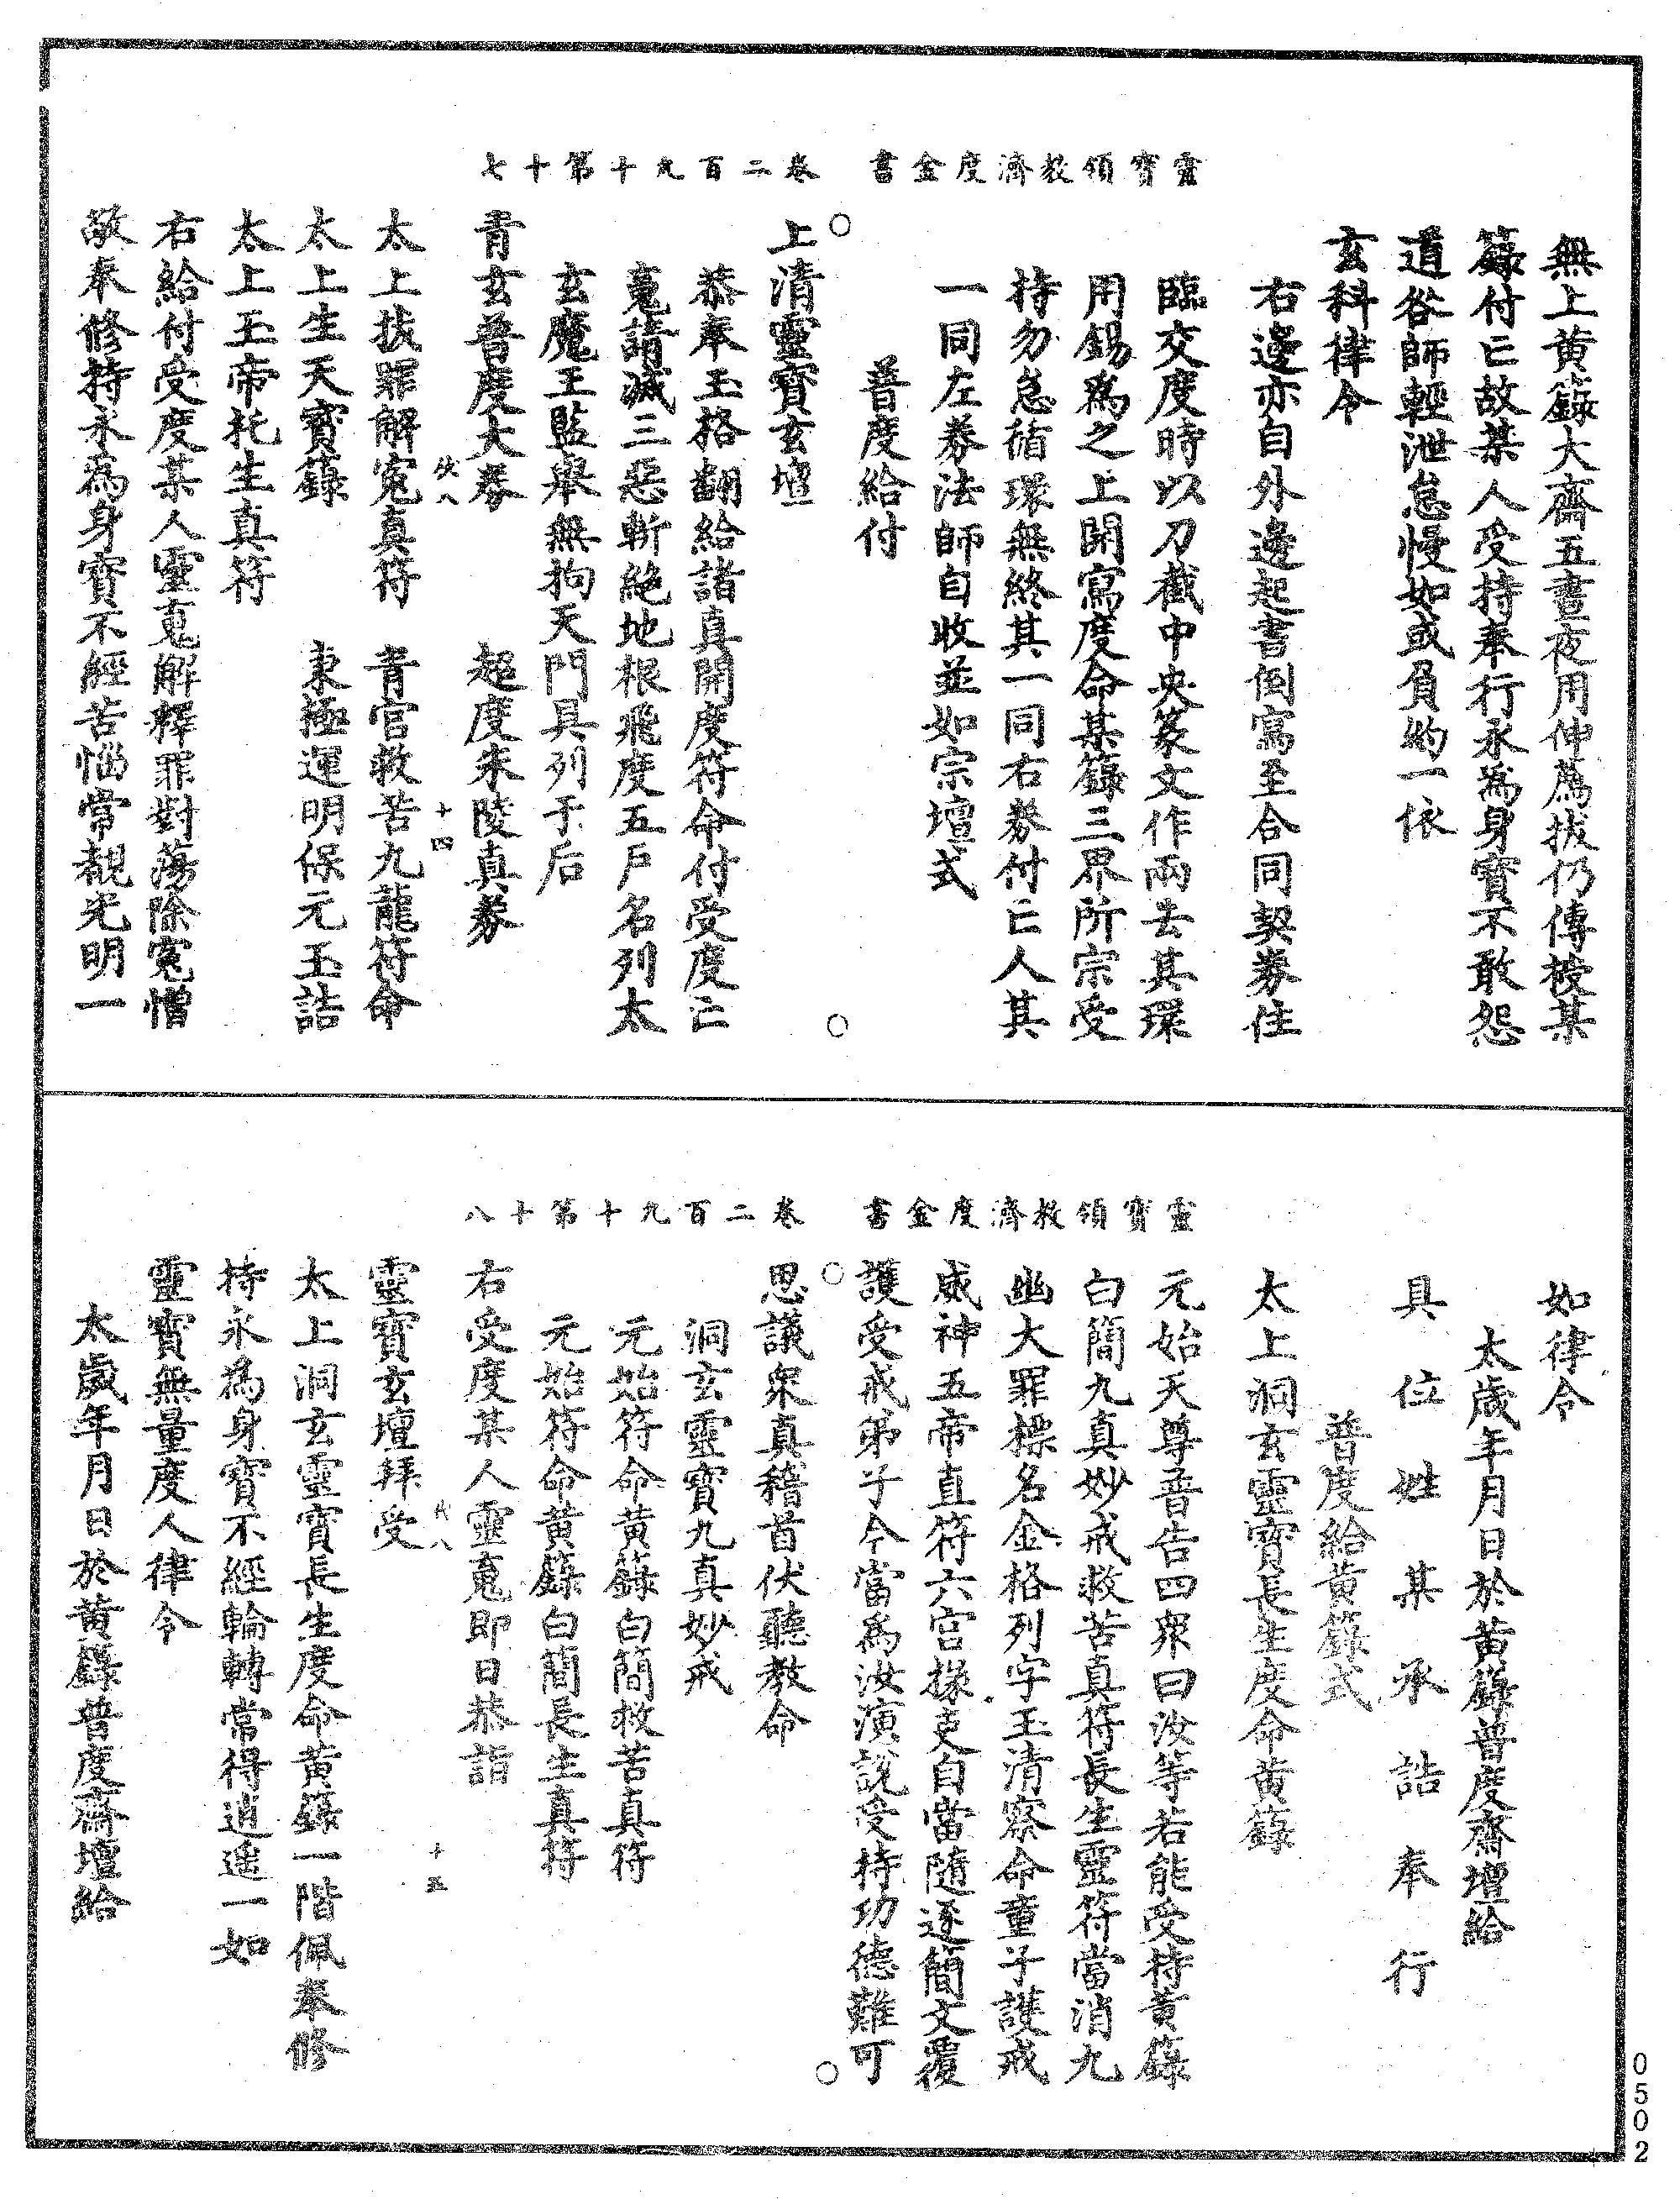 靈寶領教濟度金書　卷二百九十第十七
無上黃籙大齋五晝夜用伸薦拔仍傳授某
籙付亡故某人受持奉行永為身寶不敢怨
道咎師輕泄怠慢如或負約一依
玄科律令
右邊亦自外邊起書倒寫至合同契券住
臨交度時以刀截中央篆文作兩去其環
用錫為之上開寫度命某籙三界所宗受
持勿怠循環無終其一同右券付亡人其
一同左券法師自收並如宗壇式
普度給付
上清靈寶玄壇
恭奉玉格翻給諸真開度符命付受度亡
䰟請滅三惡斬絕地根飛度五戶名列太
玄魔王監舉無拘天門具列于后
青玄普度大券　超度朱陵真券
太上拔罪解冤真符　青宫救苦九龍符命
十四
太上生天寶籙　東極運明保元玉誥
太上玉帝托生真符
右給付受度某人靈䰟解釋罪對蕩除冤憎
敬奉修持永為身寶不經苦惱常覩光明一
靈寶領教濟度金書　卷二百九十第十八
如律令
太歲年月日於黃籙普度齋壇給
具位姓某承誥奉行
普度給黃籙式
太上洞玄靈寶長生度命黃籙
元始天尊普告四眾曰汝等若能受持黃籙
白簡九真妙戒救苦真符長生靈符當消九
幽大罪標名金格列字玉清察命童子護戒
威神五帝直符六宫掾吏自當隨逐簡文覆
護受戒弟子今當為汝演說受持功德難可
思議眾真稽首伏聽教命
洞玄靈寶九真妙戒
元始符命黃籙白簡救苦真符
元始符命黃籙白簡長生真符
右受度某人靈䰟即日恭詣
十五
靈寶玄壇拜受
太上洞玄靈寶長生度命黃籙一階佩奉修
持永為身寶不經輪轉常得逍遙一如
靈寶無量度人律令
太歲年月日於黃籙普度齋壇給
0502